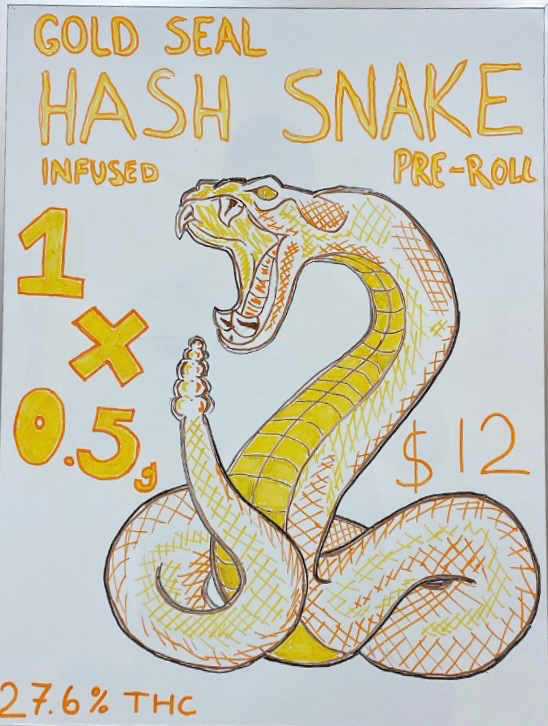 GOLD SEAL
HASH SNAKE
INFUSED PRE-ROLL
1
x
0.5g
$12
27.6% THC